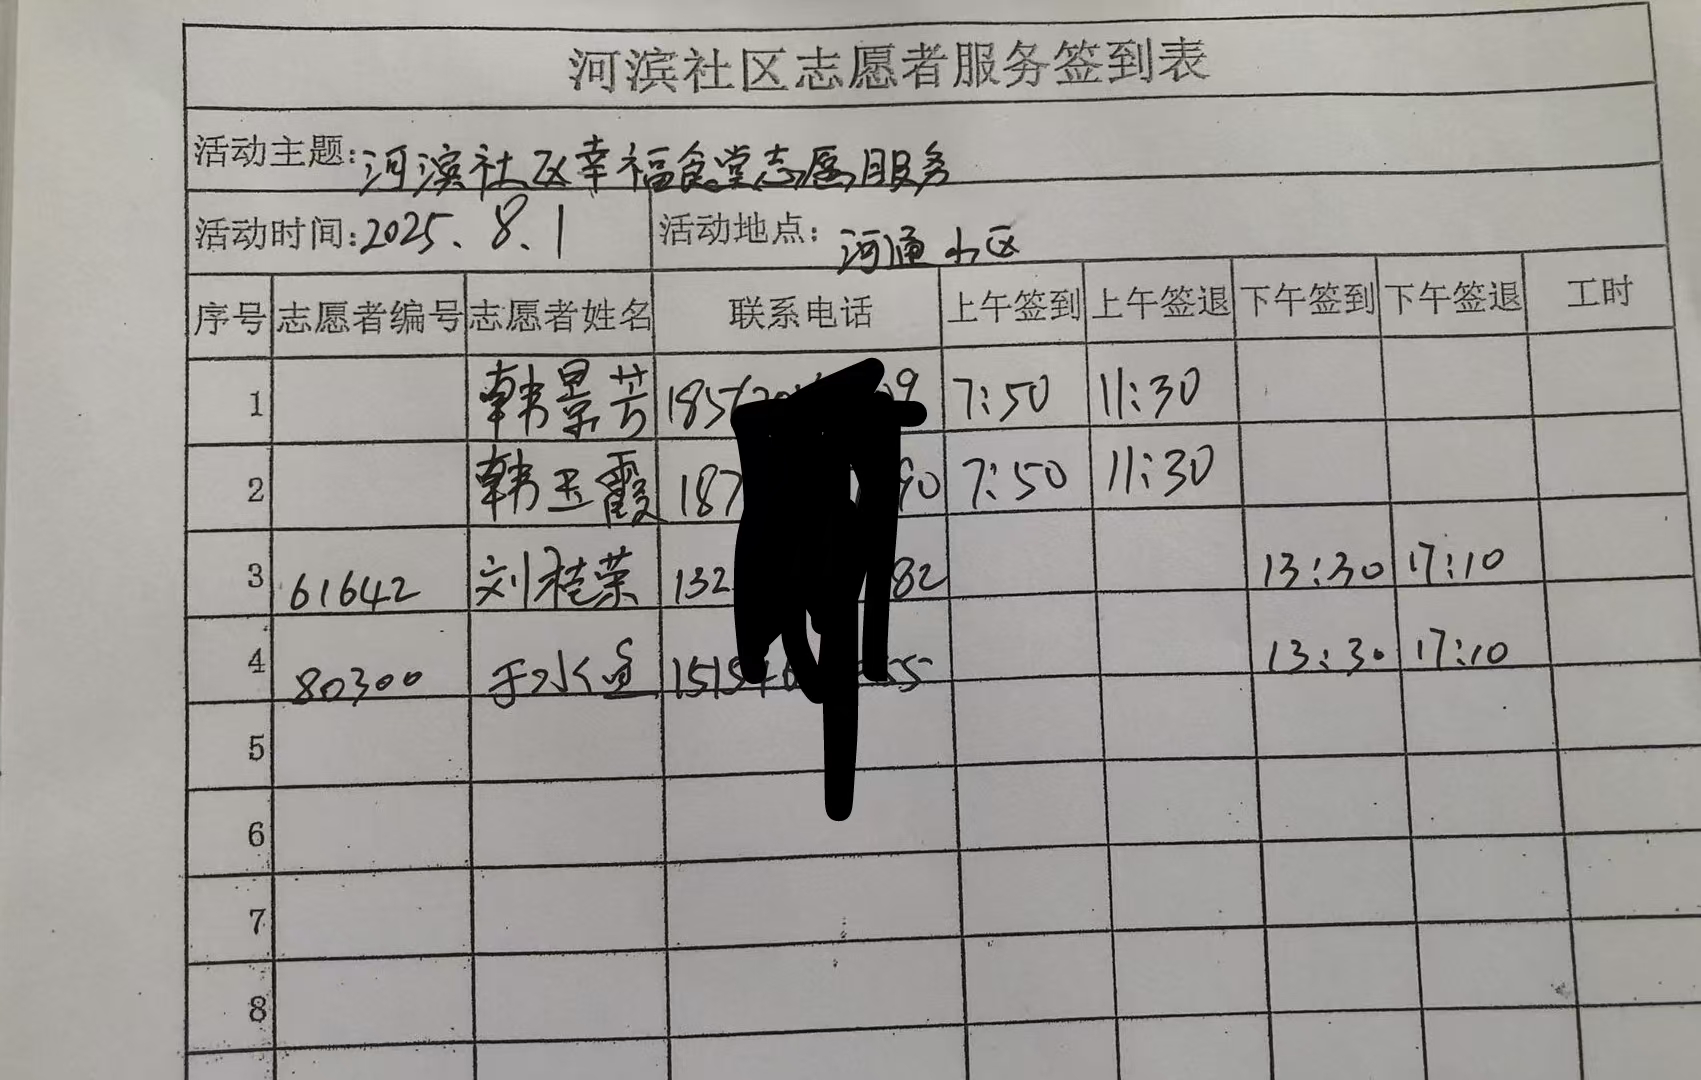 河滨社区志愿者服务签到表
活动主题:河滨社区幸福食堂志愿服务
活动时间:2025.8.1 活动地点:河通小区
序号 志愿者编号 志愿者姓名 联系电话 上午签到 上午签退 下午签到 下午签退 工时
1 韩景芳 185 09 7:50 11:30
2 韩玉霞 187 90 7:50 11:30
3 61642 刘桂荣 132 82 13:30 17:10
4 80300 于水 1515 55 13:30 17:10
5
6
7
8